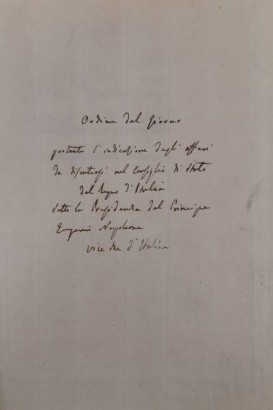 Ordine del Giorno
portante l'indicazione degli affari
da discutersi nel Consiglio di Stato
del Regno d'Italia
sotto la Presidenza del Principe
Eugenio Napoleone
vice Re d'Italia